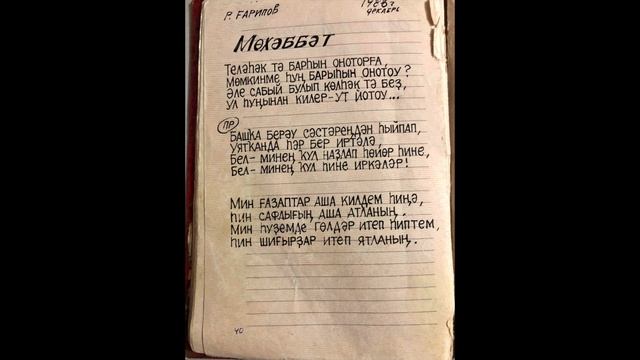 Р. ГАРИПОВ
ДЕКАБРЬ
МӨХӘББӘТ
ТЕЛӘҺӘК ТӘ БАРҺЫН ОНОТОРҒА,
МӨМКИНМЕ ҺУҢ БАРЫҺЫН ОНОТОУ?
ӘЛЕ САБЫЙ БУЛЫП КӨЛҺӘК ТӘ БЕҘ,
УЛ ҺУҢЫНАН КИЛЕР-УТ ЙОТОУ...
ПР
БАШКА БЕРӘУ СӘСТӘРЕҢДӘН ҺЫЙПАП,
УЯТКАНДА ҺӘР БЕР ИРТӘЛӘ,
БЕЛ-МИНЕҢ ҠУЛ НАҘЛАП ҺӨЙӨР ҺИНЕ,
БЕЛ-МИНЕҢ ҠУЛ ҺИНЕ ИРКӘЛӘР!
МИН ҒАЗАПТАР АША КИЛДЕМ ҺИҢӘ,
ҺИН САФЛЫҒЫҢ АША АТЛАНЫҢ.
МИН ҺҮҘЕМДЕ ГӨЛДӘР ИТЕП ҺИПТЕМ,
ҺИН ШИҒЫРҘАР ИТЕП ЯТЛАНЫҢ.
40